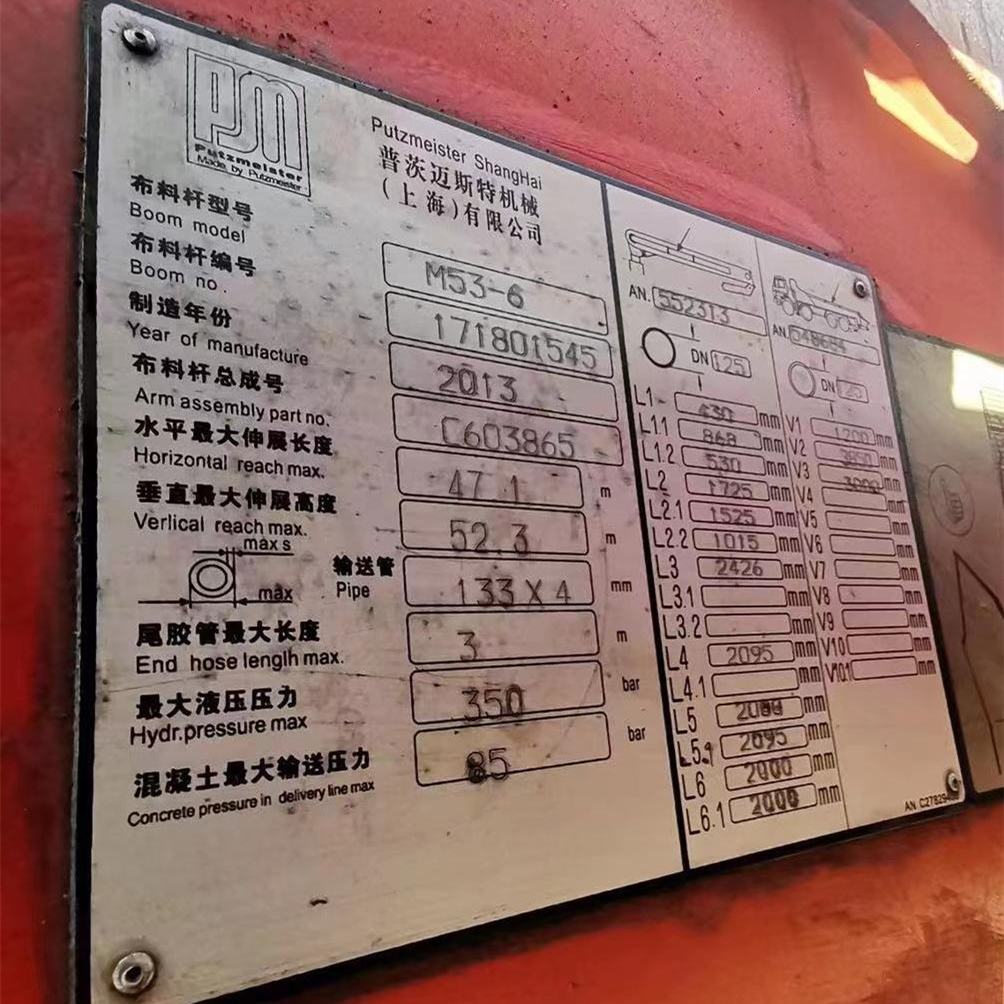 PM
Putzmeister
Made by Putzmeister
Putzmeister ShangHai
普茨迈斯特机械
(上海)有限公司
布料杆型号
Boom model
M53-6
布料杆编号
Boom no.
171801545
制造年份
Year of manufacture
2013
布料杆总成号
Arm assembly part no.
C603865
水平最大伸展长度
Horizontal reach max.
47.1 m
垂直最大伸展高度
Verlical reach max.
52.3 m
max s
max
输送管
Pipe
133 X 4 mm
尾胶管最大长度
End hose length max.
3 m
最大液压压力
Hydr.pressure max
350 bar
混凝土最大输送压力
Concrete pressure in delivery line max
85 bar
AN. 552313
DN 125
L1 430 mm
L1.1 868 mm
L1.2 530 mm
L2 1725 mm
L2.1 1525 mm
L2.2 1015 mm
L3 2426 mm
L3.1 mm
L3.2 mm
L4 2095 mm
L4.1 mm
L5 2080 mm
L5.1 2095 mm
L6 2000 mm
L6.1 2000 mm
AN
DN 125
V1 1200 mm
V2 mm
V3 3000 mm
V4 mm
V5 mm
V6 mm
V7 mm
V8 mm
V9 mm
V10 mm
V10.1 mm